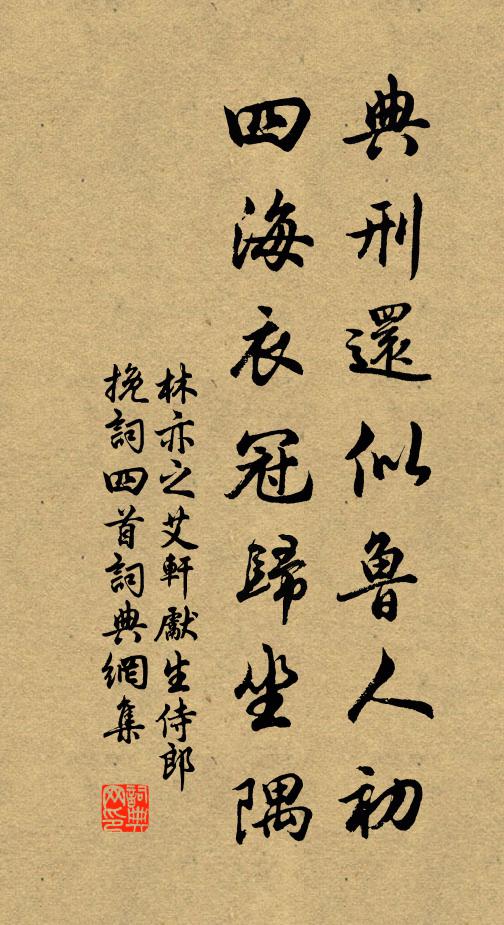 典刑還似魯人初
四海衣冠歸坐隅
林亦之艾軒獻生侍郎
挽詞四首詞典網集
詞典網印